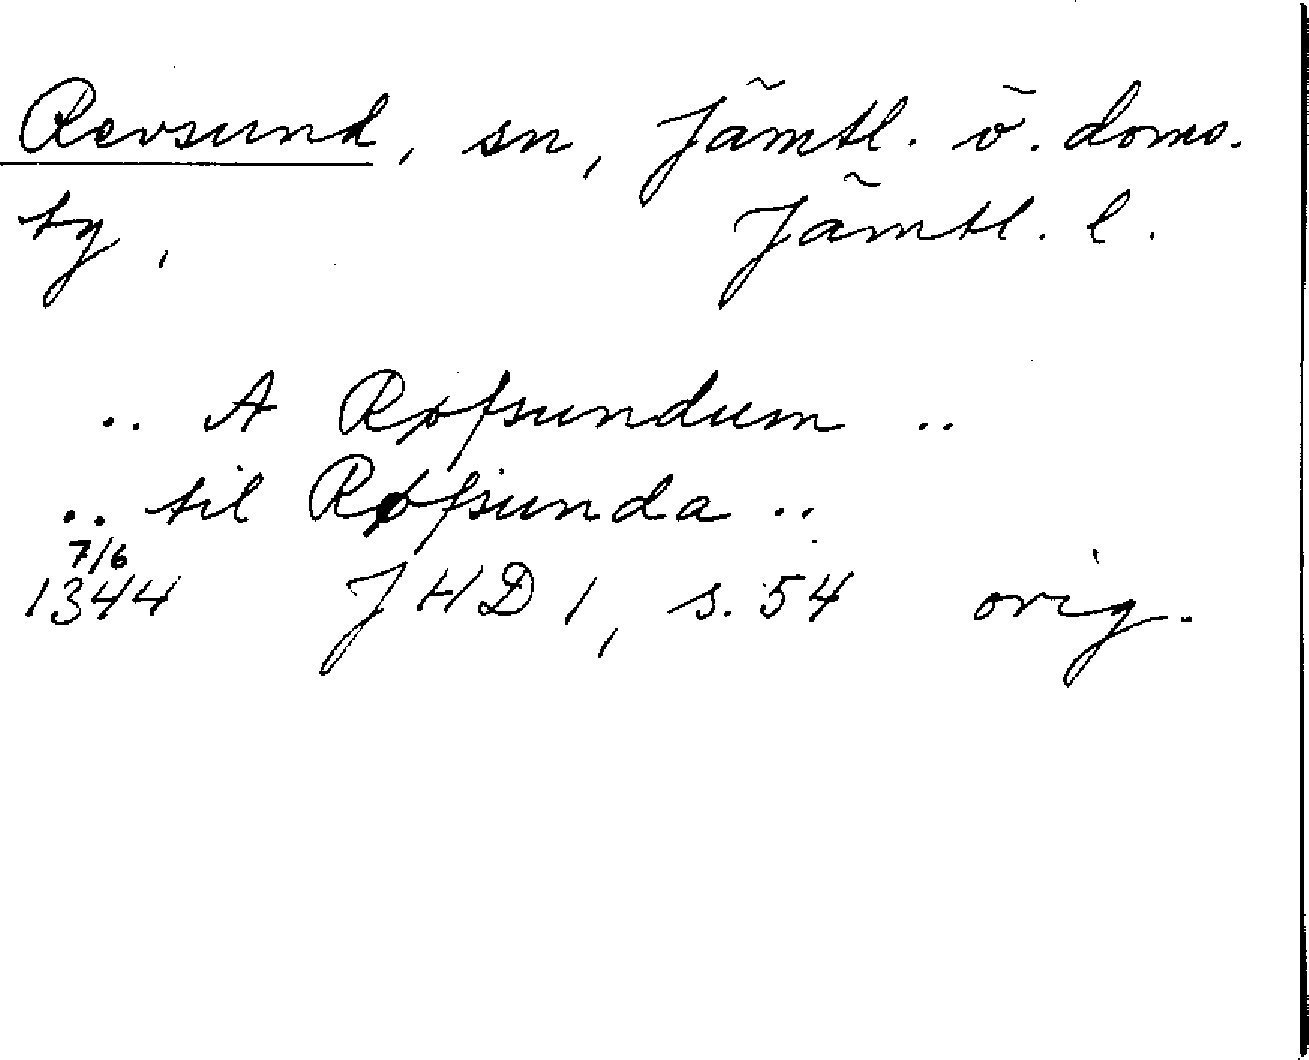 Revsund, sn, Jämtl. ö. doms.
tg, Jämtl. l.
.. A Røfsundum ..
.. til Røfsunda ..
7/6
1344 JHD 1, s. 54 orig.